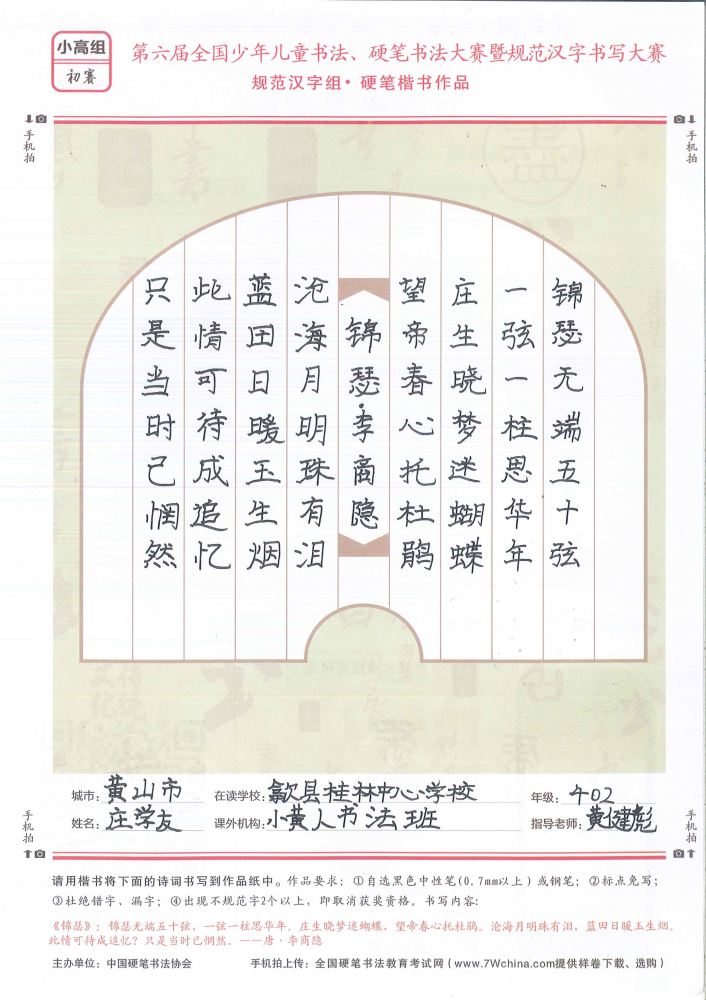 小高组
初赛
第六届全国少年儿童书法、硬笔书法大赛暨规范汉字书写大赛
规范汉字组·硬笔楷书作品
手机拍
手机拍
锦瑟无端五十弦
一弦一柱思华年
庄生晓梦迷蝴蝶
望帝春心托杜鹃
锦瑟·李商隐
沧海月明珠有泪
蓝田日暖玉生烟
此情可待成追忆
只是当时已惘然
城市：黄山市 在读学校：歙县桂林中心学校 年级：402
姓名：庄学友 课外机构：小黄人书法班 指导老师：黄健彪
手机拍
手机拍
请用楷书将下面的诗词书写到作品纸中。作品要求：①自选黑色中性笔(0.7mm以上)或钢笔；②标点免写；
③杜绝错字、漏字；④出现不规范字2个以上，即取消获奖资格。书写内容：
《锦瑟》：锦瑟无端五十弦，一弦一柱思华年。庄生晓梦迷蝴蝶，望帝春心托杜鹃。沧海月明珠有泪，蓝田日暖玉生烟。
此情可待成追忆？只是当时已惘然。——唐·李商隐
主办单位：中国硬笔书法协会 手机拍上传：全国硬笔书法教育考试网（www.7Wchina.com提供样卷下载、选购）